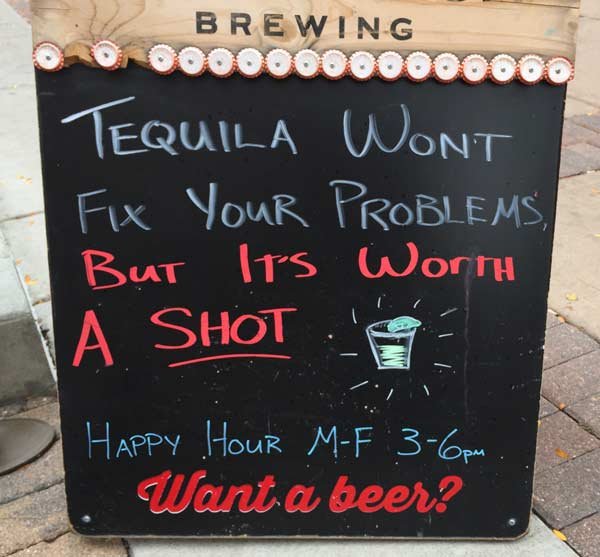 BREWING
TEQUILA WONT
FIX YOUR PROBLEMS,
BUT IT'S WORTH
A SHOT
HAPPY HOUR M-F 3-6pm
Want a beer?